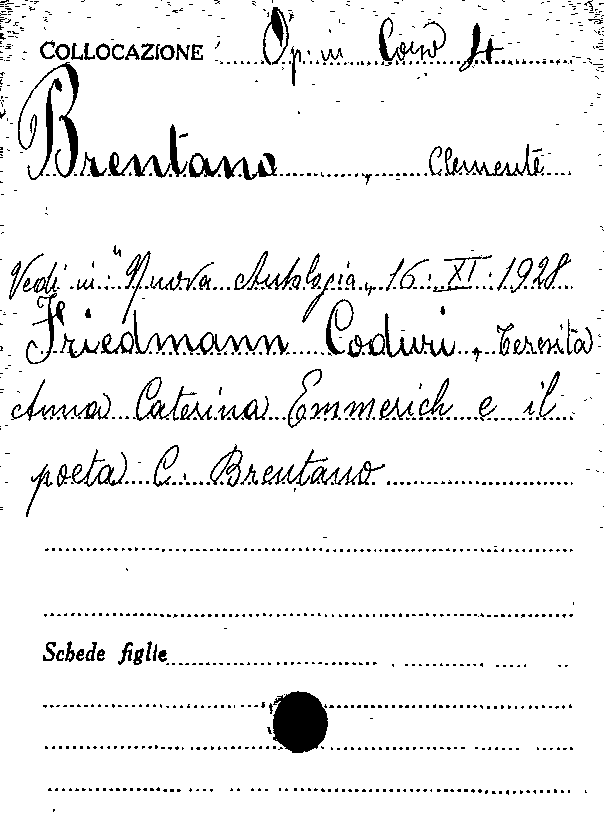 COLLOCAZIONE Op. in Corso 4
Brentano, Clemente
Vedi in "Nuova Antologia" 16. XI. 1928
Friedmann Coduri, Teresita
Anna Caterina Emmerich e il
poeta C. Brentano
Schede figlie